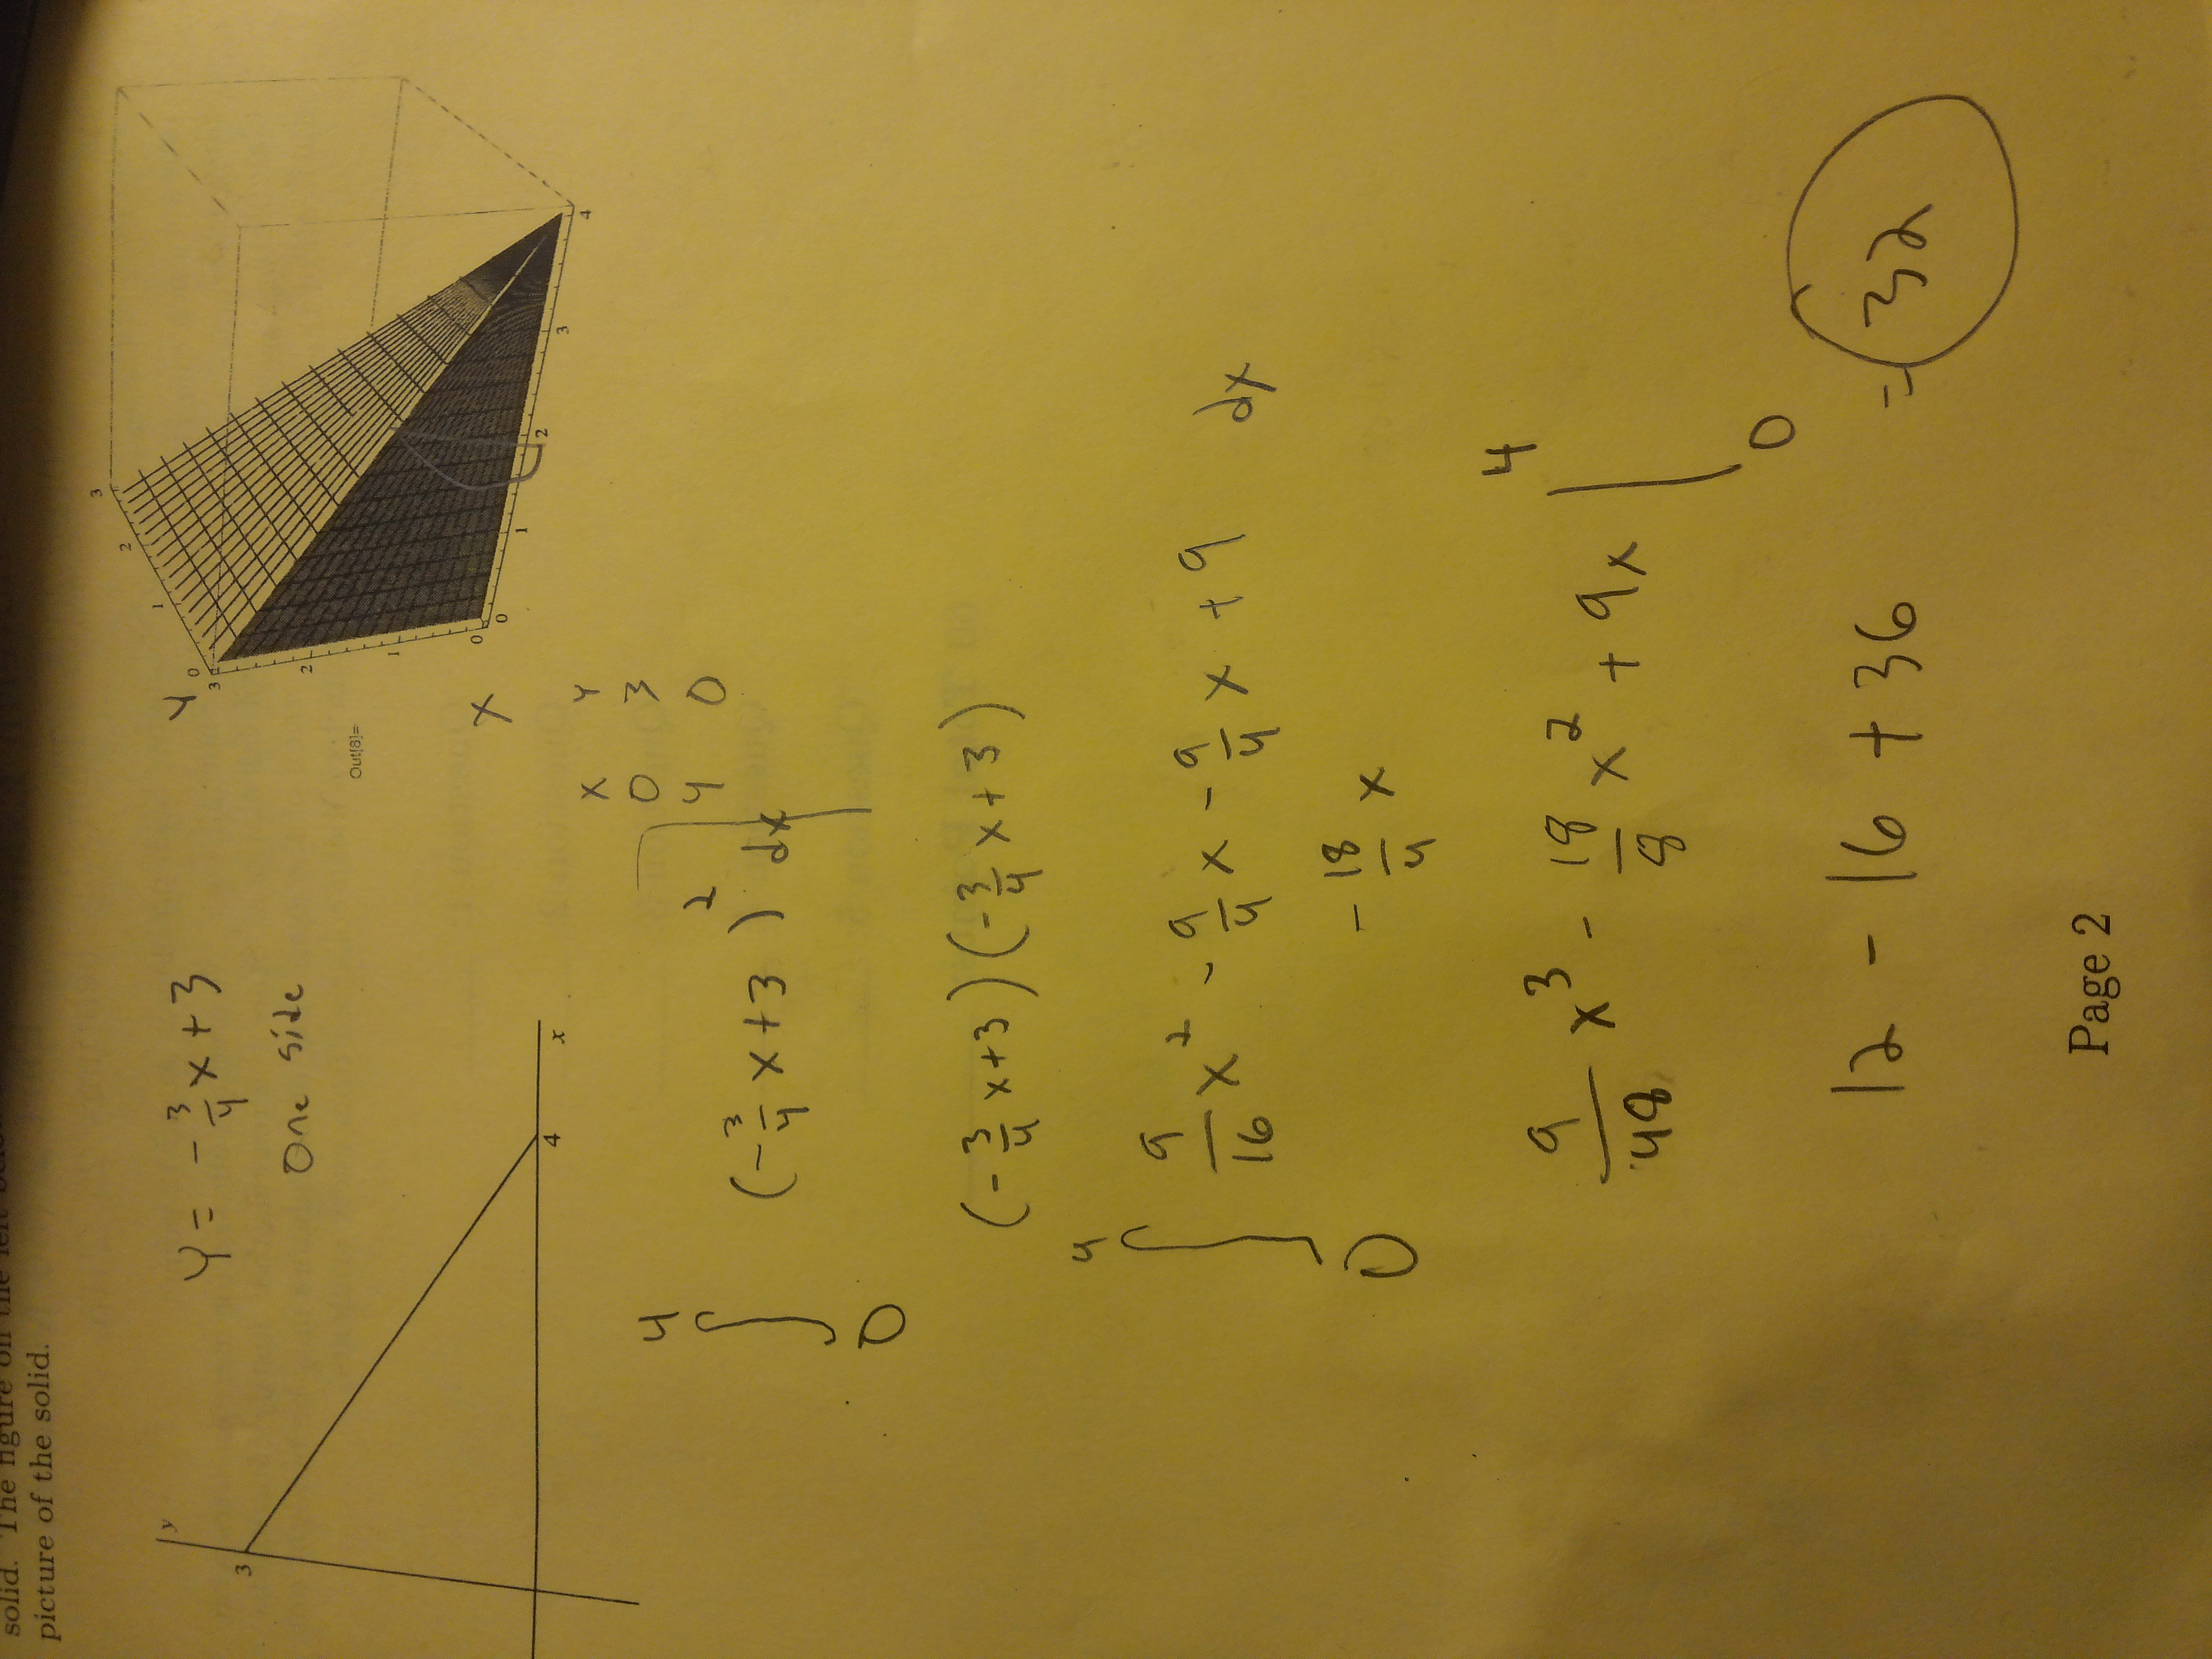 solid. The figure on the left
picture of the solid.
y
3
4
x
Y = - 3/4 x + 3
One side
Y
X
3
2
1
0
3
2
1
0
0
1
2
3
4
Out[8]=
X Y
0 3
4 0
∫₀⁴ (- 3/4 x + 3)² dx
(- 3/4 x + 3)(- 3/4 x + 3)
∫₀⁴ 9/16 x² - 9/4 x - 9/4 x + 9 dx
- 18/4 x
9/48 x³ - 18/8 x² + 9x |₀⁴
12 - 16 + 36 = 32
Page 2